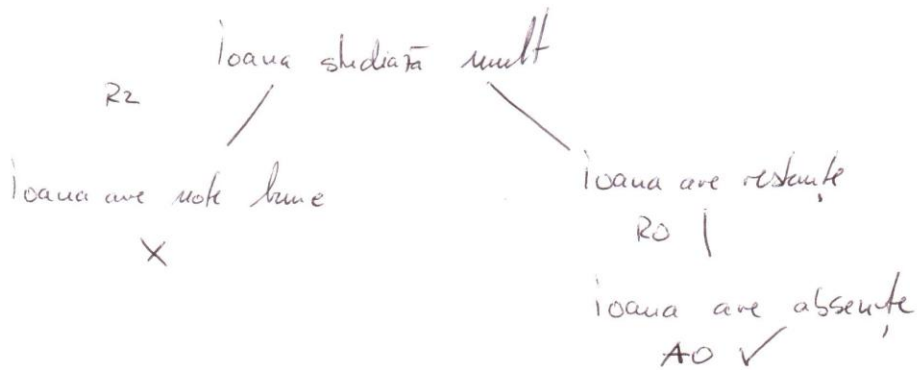 Ioana studiază mult
R2
Ioana are note bune
X
Ioana are restanțe
R0
Ioana are absențe
A0 ✓